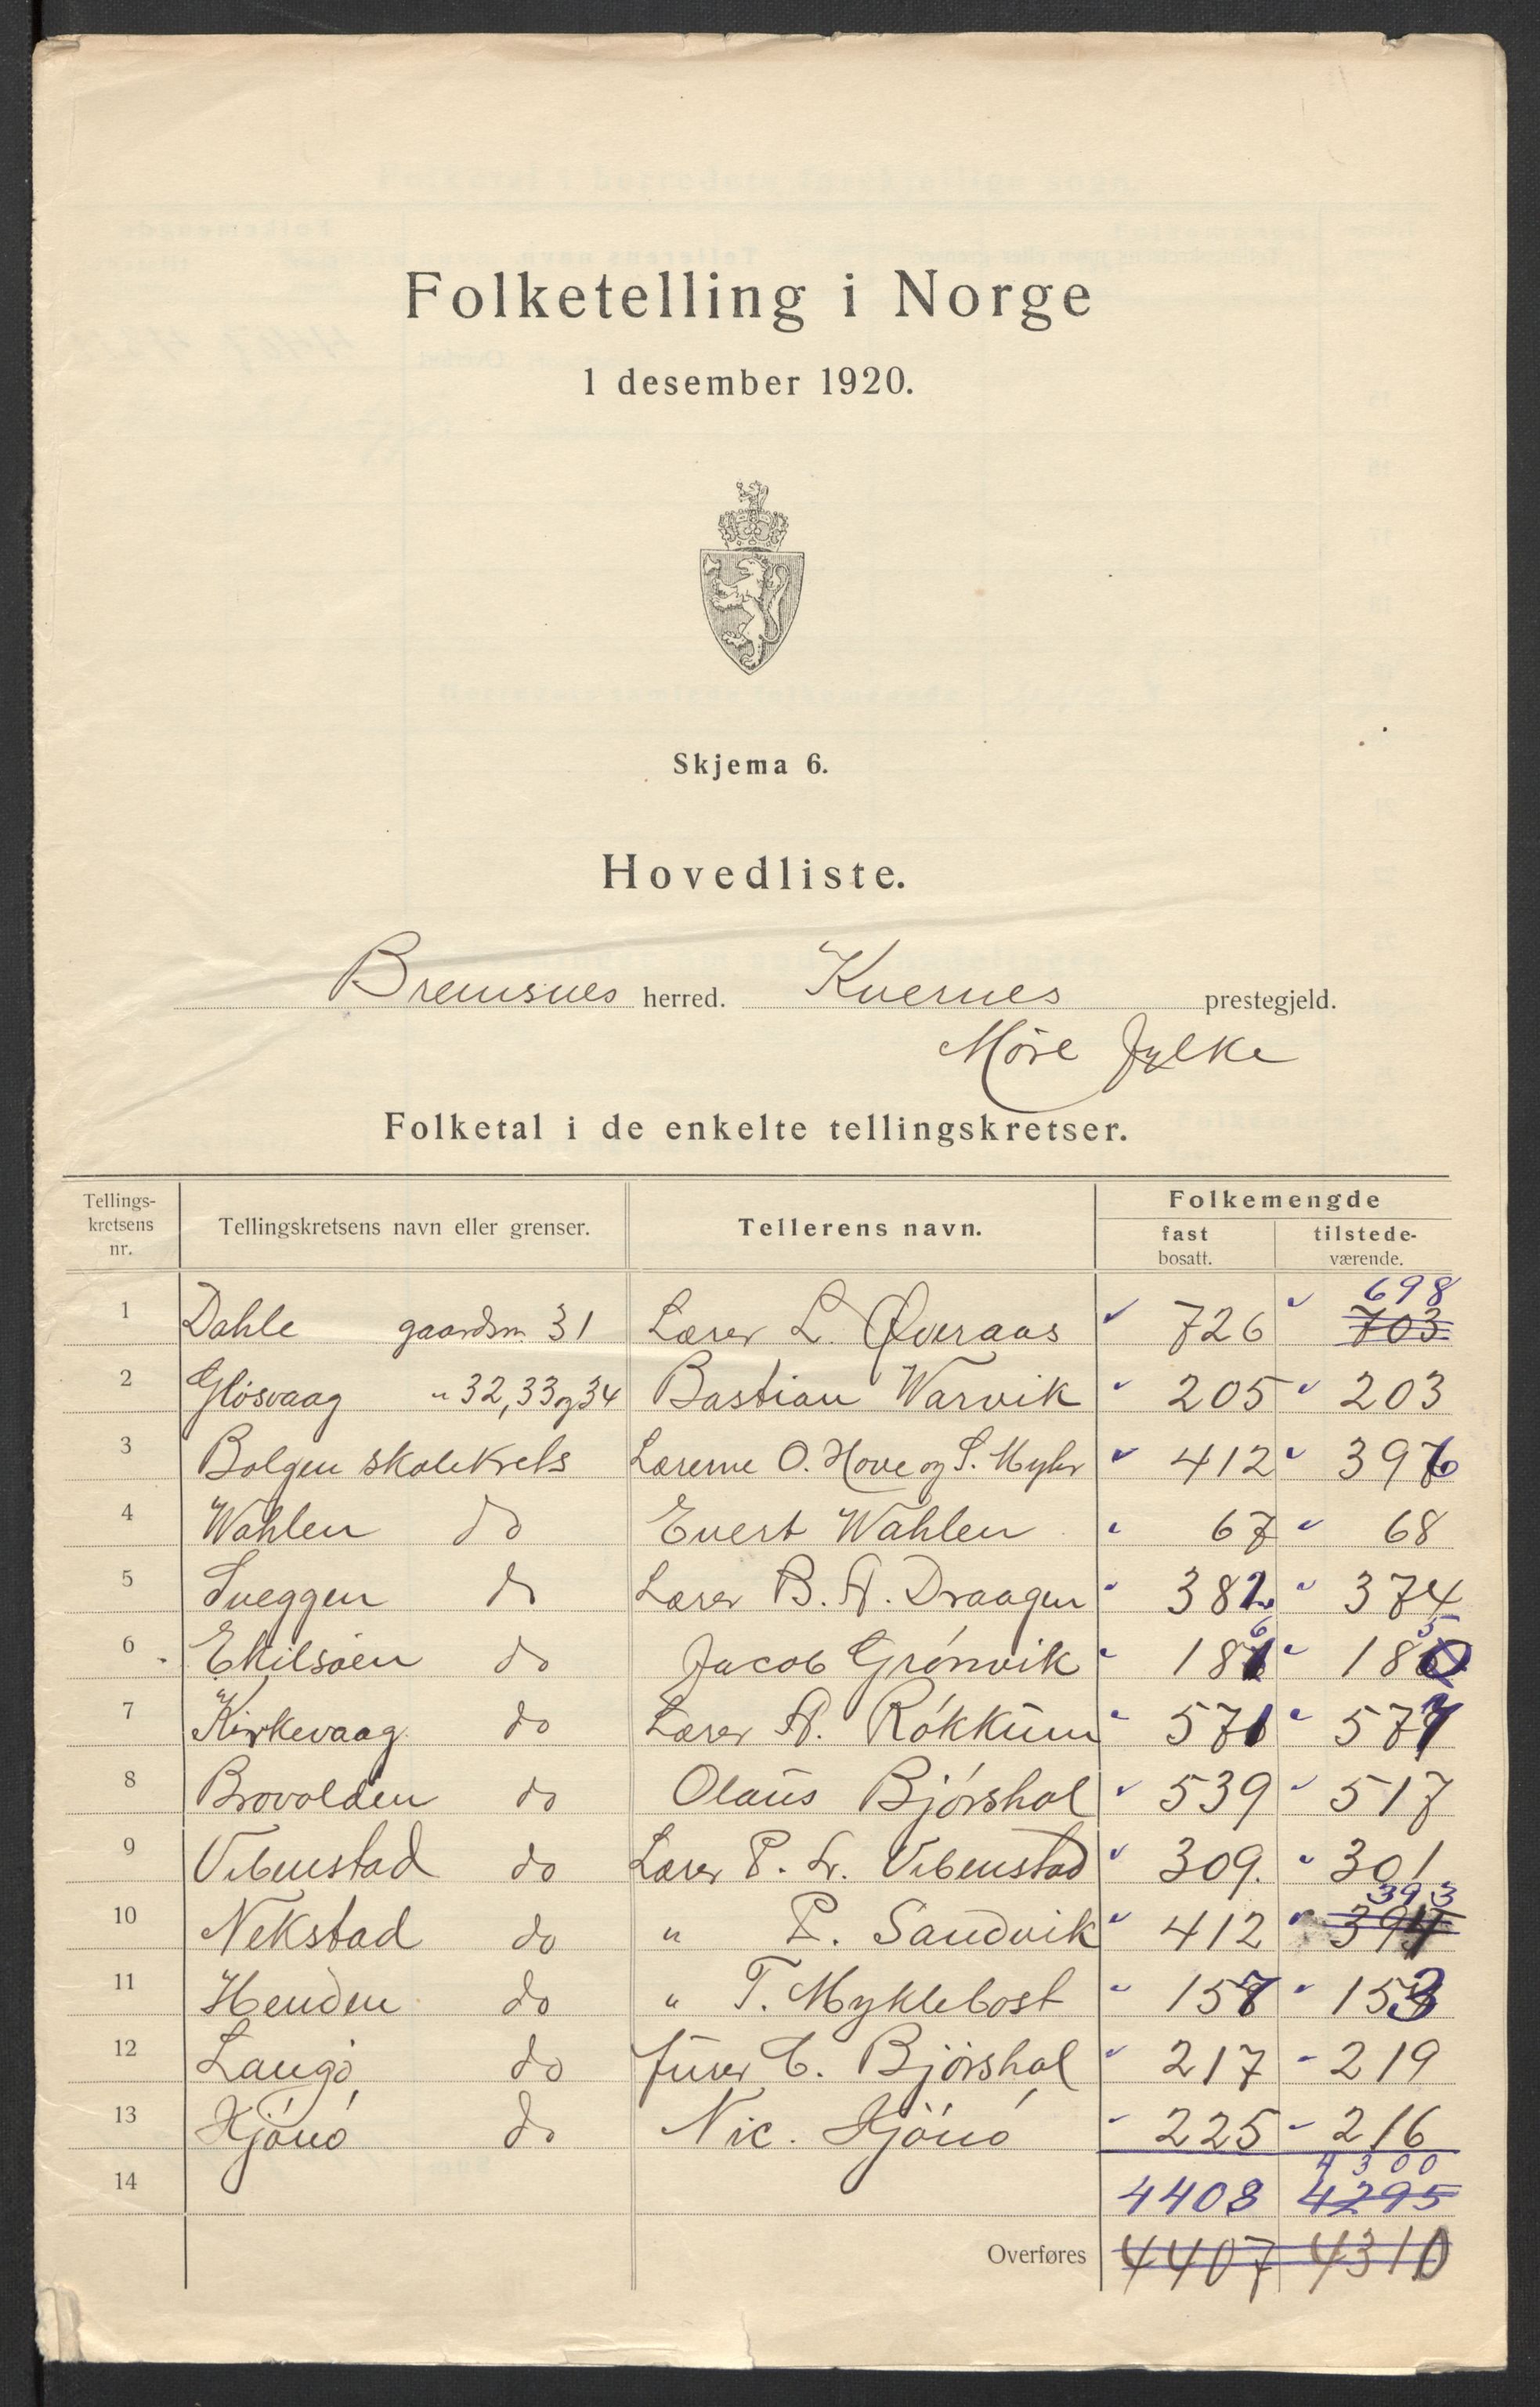 Folketelling i Norge
1 desember 1920.
Skjema 6.
Hovedliste.
Bremsnes herred. Kvernes prestegjeld.
Møre fylke
Folketal i de enkelte tellingskretser.
Tellings-kretsens nr. Tellingskretsens navn eller grenser. Tellerens navn. Folkemengde
fast bosatt. tilstede-værende.
698
1 Dahle gaardsn. 31 Lærer L. Øveraas 726 703
2 Gløsvaag " 32, 33 og 34 Bastian Warvik 205 203
3 Bolgen skolekrets Lærerne O. Hove og S. Myhr 412 396
4 Wahlen do Evert Wahlen 67 68
5 Sveggen do Lærer B. A. Draagen 382 374
6 Ekilsøen do Jacob Grønvik 186 185
7 Kirkevaag do Lærer A. Røkkum 571 577
8 Brovolden do Olaus Bjørshol 539 517
9 Vibenstad do Lærer P. L. Vibenstad 309. 301
393
10 Nekstad do " P. Sandvik 412 394
11 Henden do " T. Myklebost 157 153
12 Langø do C. Bjørshol 217 219
13 Hjønø do Nic. Hjønø 225 216
4300
14 4408 4295
Overføres 4407 4310